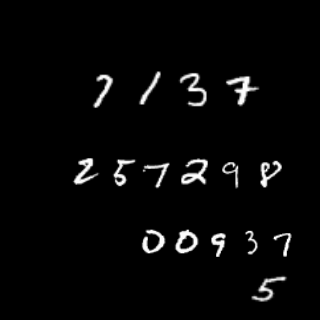 7137
257298
00937
5